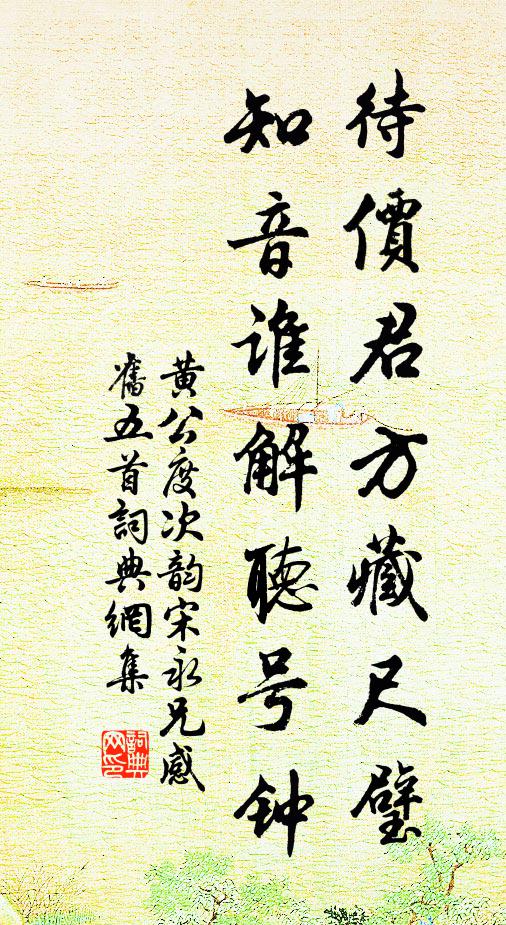 待價君方藏尺璧
知音誰解聽号钟
黄公度次韵宋永兄感
舊五首詞典網集
詞典网印